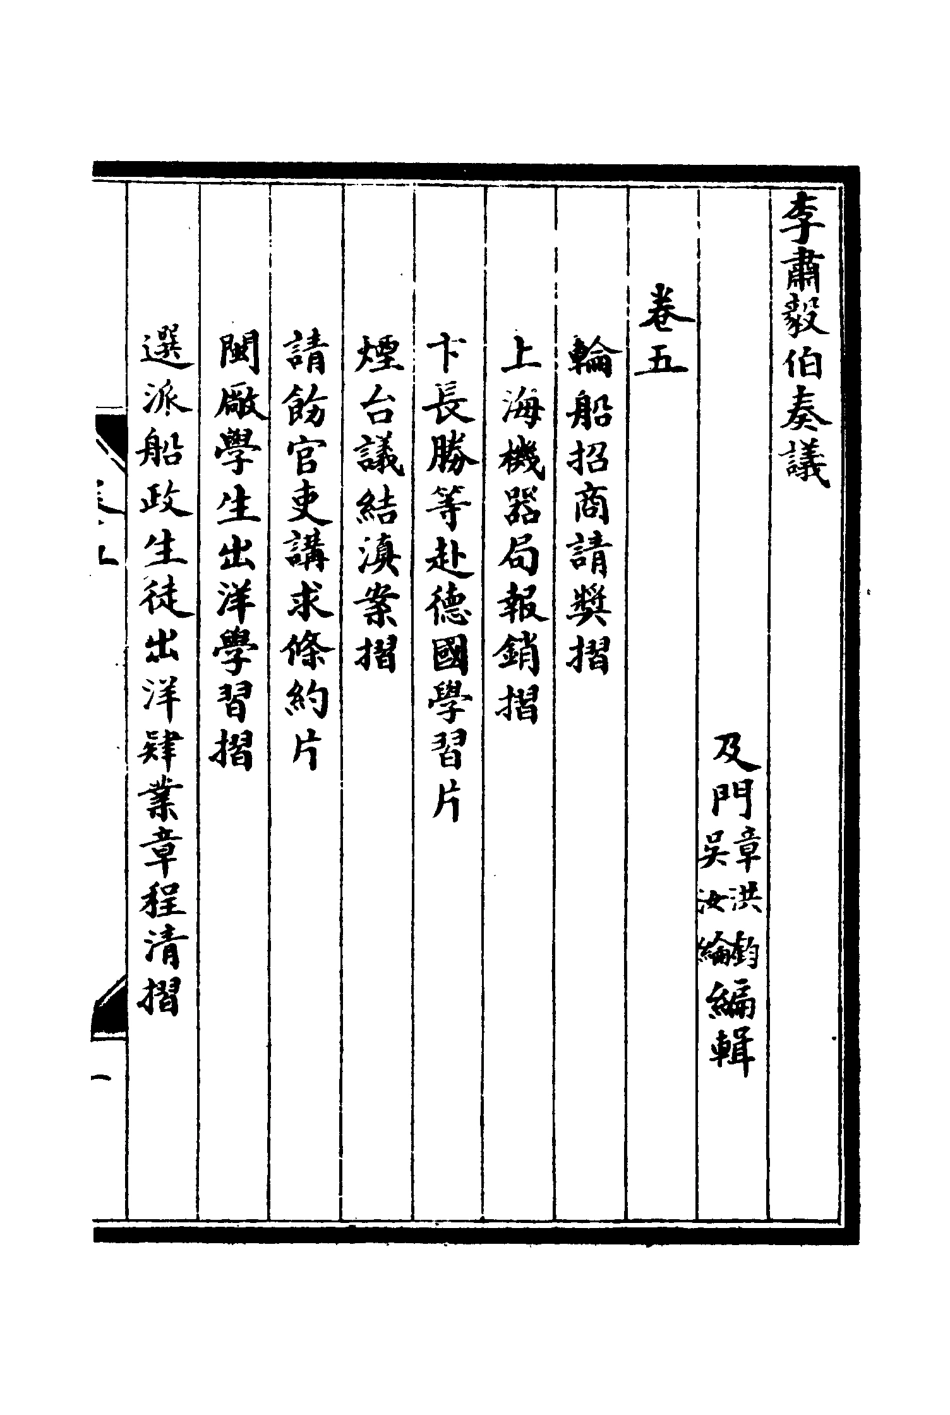 李肅毅伯奏議
及門章洪鈞吳汝綸編輯
卷五
輪船招商請獎摺
上海機器局報銷摺
卞長勝等赴德國學習片
煙台議結滇案摺
請飭官吏講求條約片
閩廠學生出洋學習摺
選派船政生徒出洋肄業章程清摺
一